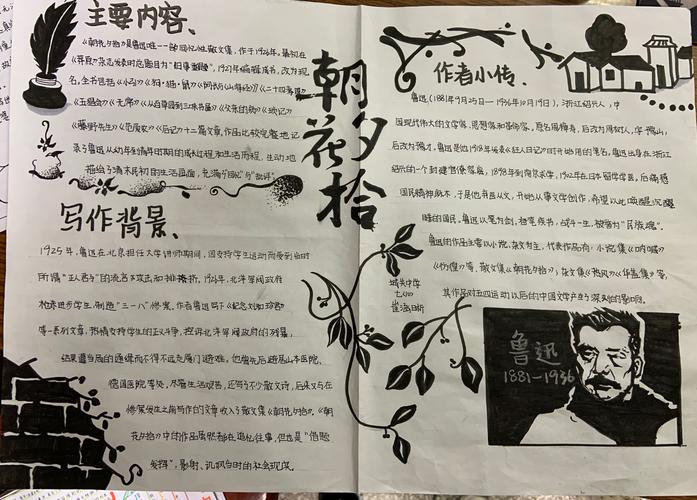 主要内容、
《朝花夕拾》是鲁迅唯一一部回忆性散文集，作于1926年，最初在
《莽原》杂志发表时总题目为"旧事重提"，1927年编辑成书，改为现
名，全书包括《小引》《狗·猫·鼠》《阿长与山海经》《二十四孝图》
《五猖会》《无常》《从百草园到三味书屋》《父亲的病》《琐记》
《藤野先生》《范爱农》《后记》十二篇文章，作品比较完整地记
录了鲁迅从幼年到青年时期的成长过程和生活历程，生动地
描绘了清末民初的生活画面，充满了回忆与"批评"。
写作背景、
1925年，鲁迅在北京担任大学讲师期间，因支持学生运动而受到当时
所谓"正人君子"的流言攻击和排挤。1926年，北洋军阀政府
枪杀进步学生，制造"三一八"惨案。作者鲁迅写下《纪念刘和珍君》
等一系列文章，热情支持学生的正义斗争，控诉北洋军阀政府的残暴，
结果遭当局的通缉而不得不远走厦门避难。他曾先后避居山本医院，
德国医院等处，尽管生活艰苦，还写了不少散文诗，后来又与在
惨案发生之前写作的文章收入了散文集《朝花夕拾》，《朝
花夕拾》中的作品虽然都在追忆往事，但也是"借题
发挥"，影射、讥讽当时的社会现实。
朝花夕拾
作者小传、
鲁迅，(1881年9月25日—1936年10月19日)，浙江绍兴人，中
国现代伟大的文学家、思想家和革命家，原名周樟寿，后改为周树人，字豫山，
后改为豫才，鲁迅是他1918年发表《狂人日记》时开始用的笔名，鲁迅出身在浙江
绍兴的一个封建官僚家庭，1898年到南京求学，1902年在日本留学学医，后痛感
国民精神麻木，于是他弃医从文，开始从事文学创作，希望以此唤醒沉醒
睡的国民。鲁迅以笔为剑，奋笔疾书，战斗一生，被誉为"民族魂"。
鲁迅的作品主要以小说，杂文为主，代表作品有：小说集《呐喊》
《彷徨》等，散文集《朝花夕拾》；杂文集《热风》《华盖集》等，
其作品对五四运动以后的中国文学产生了深刻的影响。
城关中学
崔洛晰
鲁迅
1881-1936